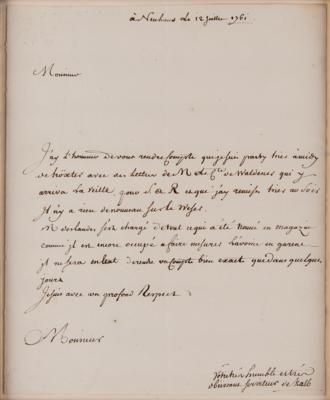 à Neuhaus le 12 juillet 1761
Monsieur
J'ay l'honneur de vous rendre Compte que je suis party hier a midy
de avec des lettres de M. le Cte de Waldener qui y
arriva la veille, pour S.A.R ce que j'ay remise hier au Soir
Il n'y a rien de nouveau sur le Weser.
M. derlandes s'est chargé de tout ce qui a été trouvé en magazin
comme il est encore occupé a faire mesurer l'avoine en garene
il ne sera en Etat de rendre un Compte bien exact que dans quelque
jours
Je suis avec un profond Respect
Monsieur
Vôtre très humble et très
obeissant serviteur de Kalb